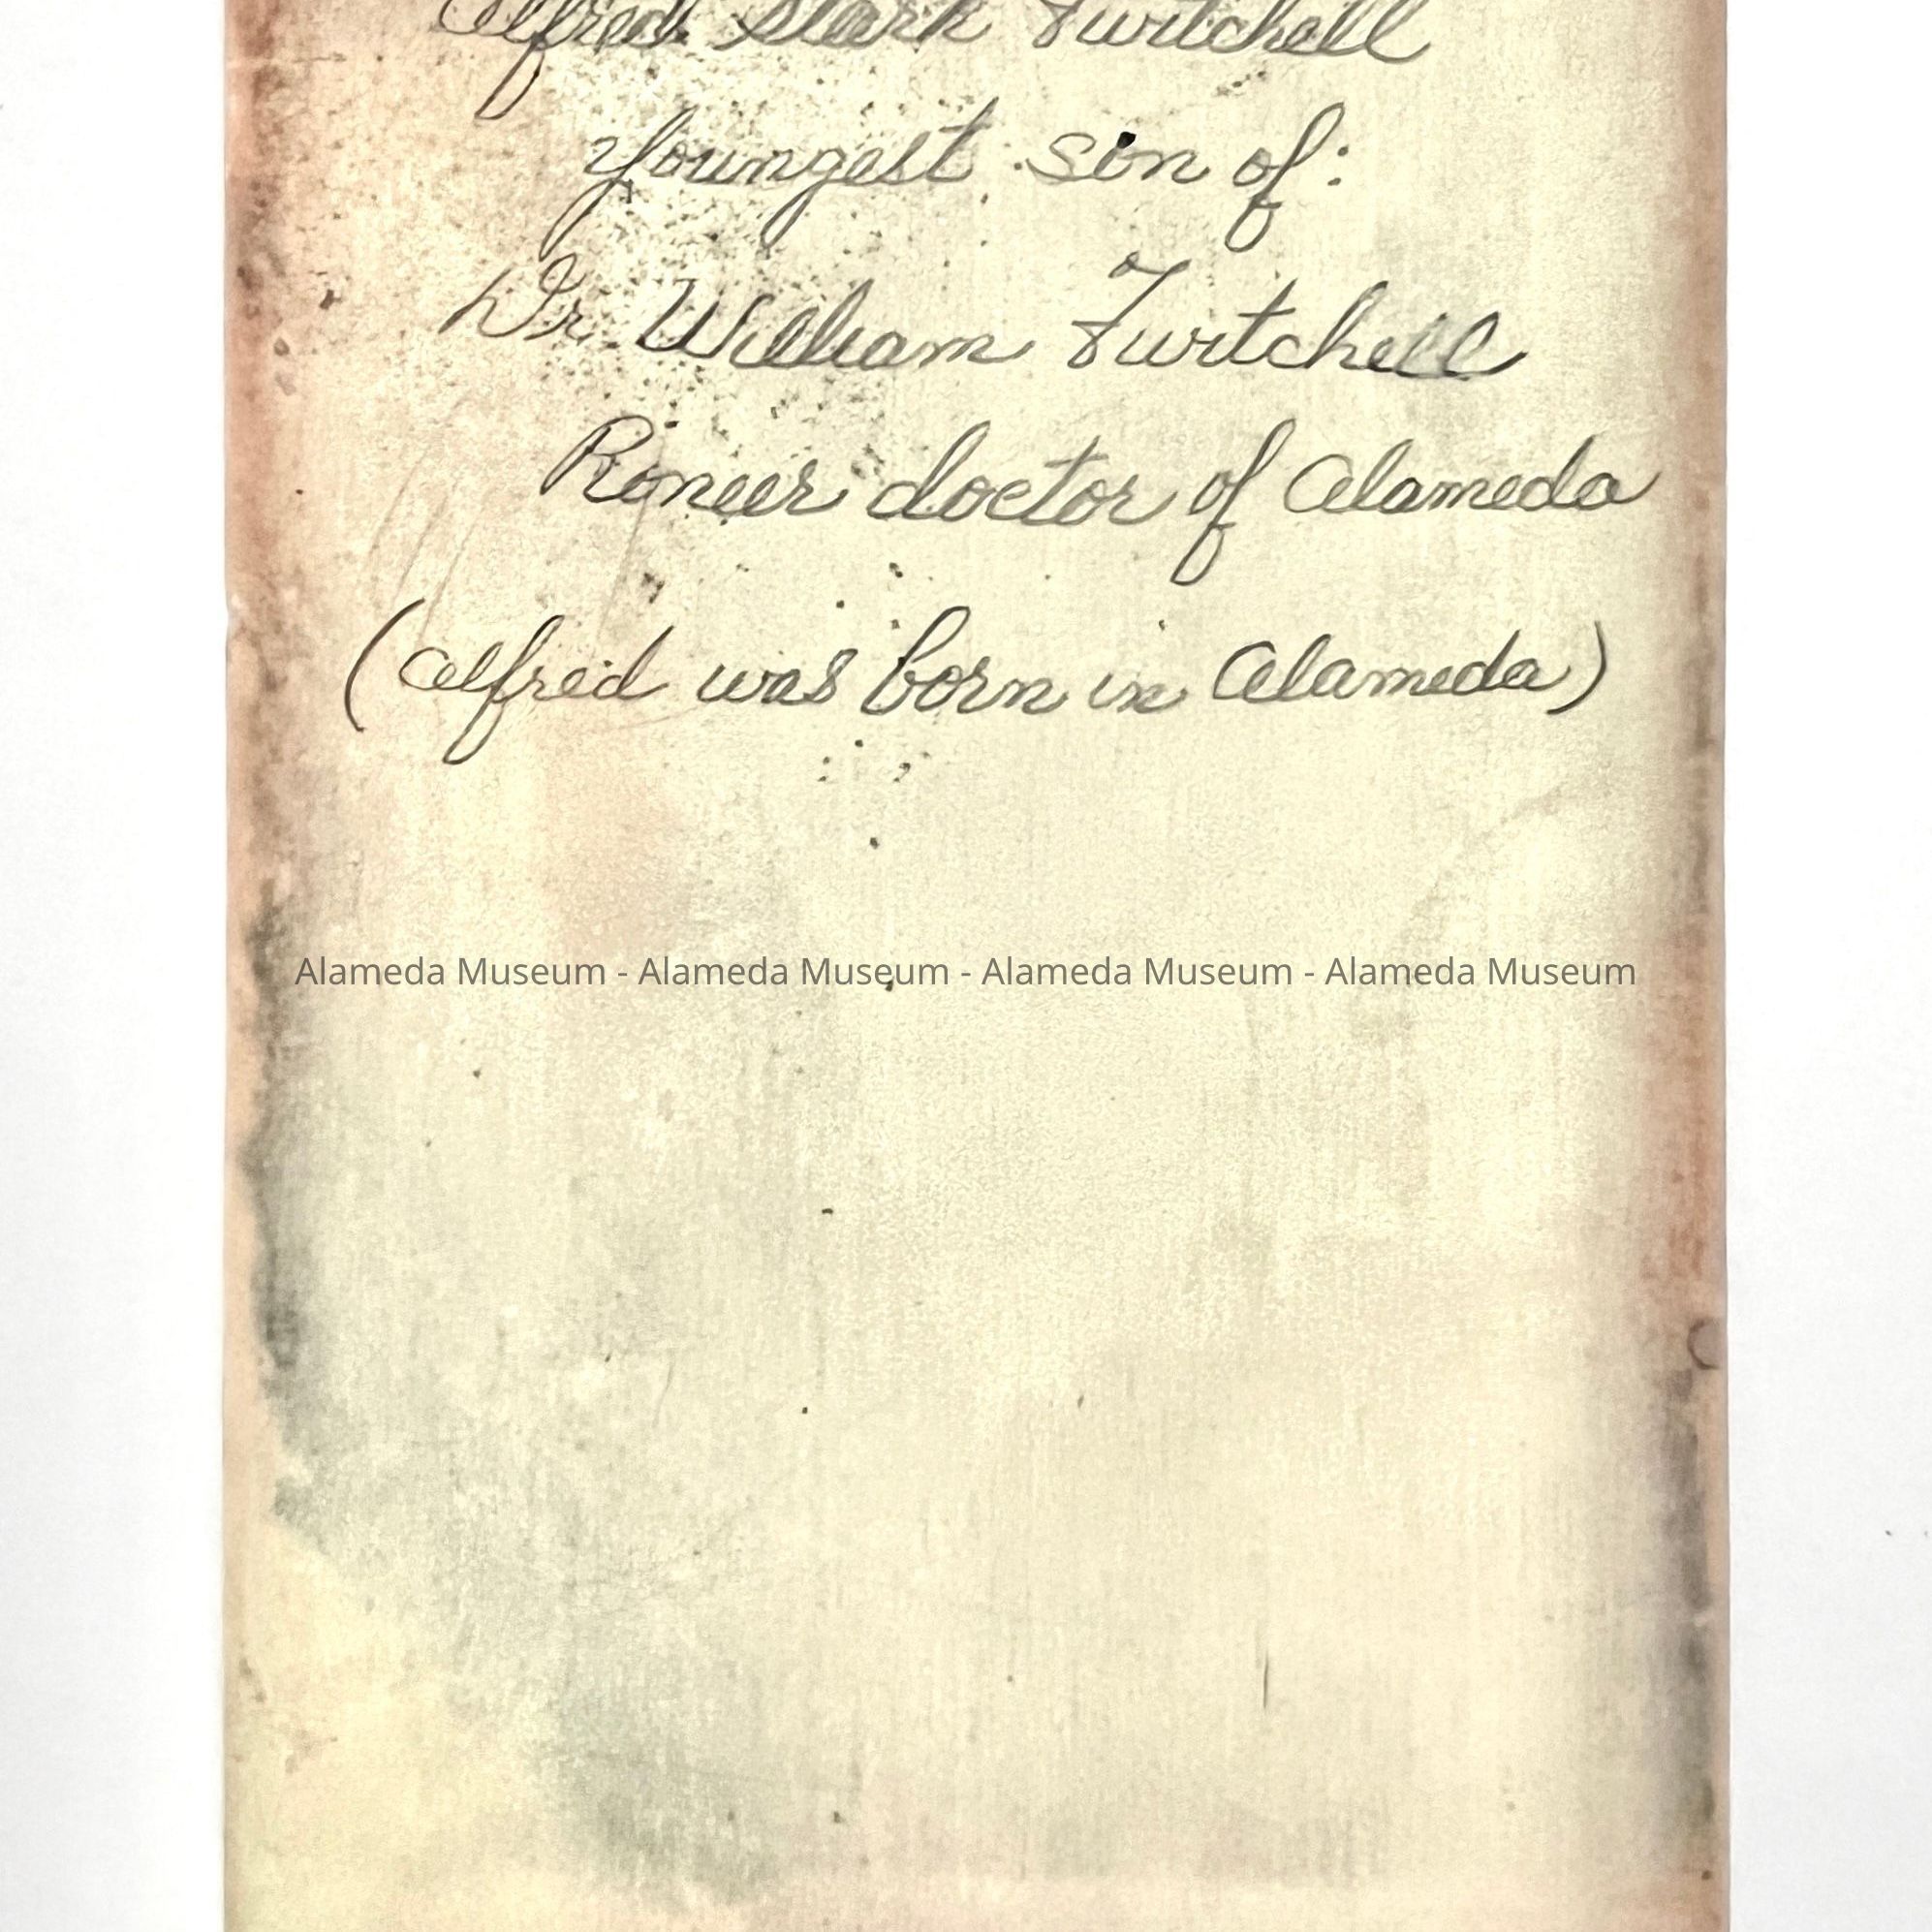 Alfred Stark Twitchell
youngest son of:
Dr. William Twitchell
Pioneer doctor of Alameda
(Alfred was born in Alameda)
Alameda Museum - Alameda Museum - Alameda Museum - Alameda Museum